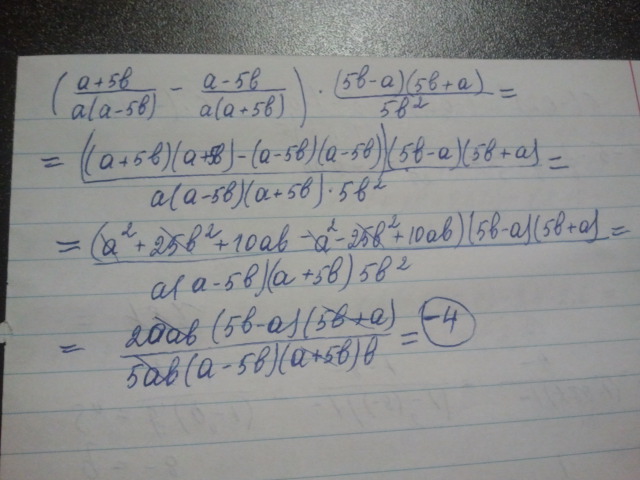 ( (a+5b)/(a(a-5b)) - (a-5b)/(a(a+5b)) ) · ((5b-a)(5b+a))/(5b²) =
= (((a+5b)(a+5b)-(a-5b)(a-5b))(5b-a)(5b+a))/(a(a-5b)(a+5b)·5b²) =
= ((a²+25b²+10ab-a²-25b²+10ab)(5b-a)(5b+a))/(a(a-5b)(a+5b)5b²) =
= (20ab(5b-a)(5b+a))/(5ab(a-5b)(a+5b)b) = -4